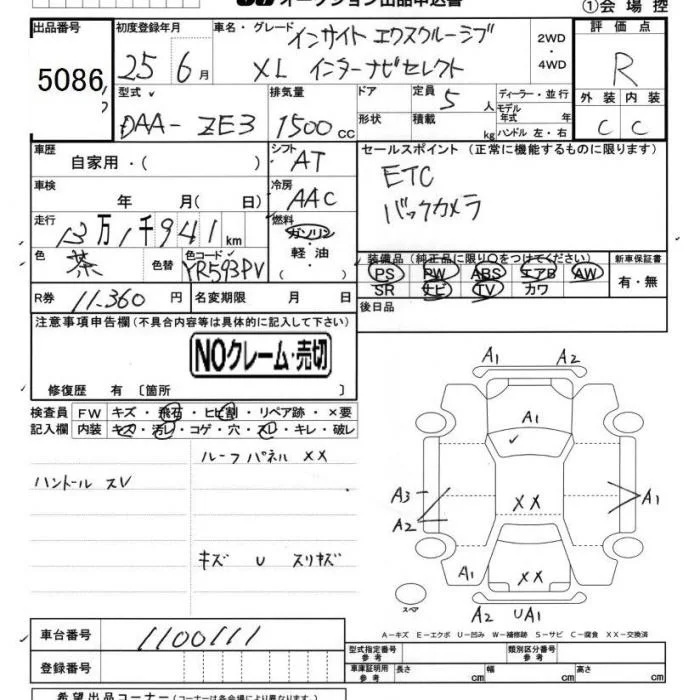 オークション出品申込書
①会場控
出品番号 初度登録年月 車名・グレード 評価点
5086 25 6月 インサイト エクスクルーシブ 2WD R
XL インターナビセレクト ・4WD
型式 排気量 ドア 定員 5人 ディーラー・並行 外装 内装
DAA-ZE3 1500cc 形状 積載 kg モデル年式 年 C C
ハンドル 左・右
車歴 自家用・( ) シフト AT セールスポイント (正常に機能するものに限ります)
車検 年 月( 日) 冷房 AAC ETC
バックカメラ
走行 13万1千941km 燃料 ガソリン
・軽油・( )
色 茶 色替 色コード YR593PV 装備品 (純正品に限り○をつけてください) 新車保証書
PS PW ABS エアB AW 有・無
SR ナビ TV カワ
R券 11.360円 名変期限 月 日 後日品
注意事項申告欄 (不具合内容等は具体的に記入して下さい)
NOクレーム・売切
修復歴 有 〔箇所 〕
検査員 FW キズ・飛石・ヒビ割・リペア跡・×要
記入欄 内装 キズ・汚レ・コゲ・穴・スレ・キレ・破レ
ルーフパネル XX
ハンドル スレ
キズ U スリキズ
A1 A2
A1
A3 XX A1
A2
A1 XX
スペア A2 UA1
A-キズ E-エクボ U-凹み W-補修跡 S-サビ C-腐食 XX-交換済
車台番号 1100111 型式指定番号 参考 類別区分番号 参考
登録番号 車庫証明用 参考 長さ cm 幅 cm 高さ cm
希望出品コーナー (コーナーは各会場により異なります。)